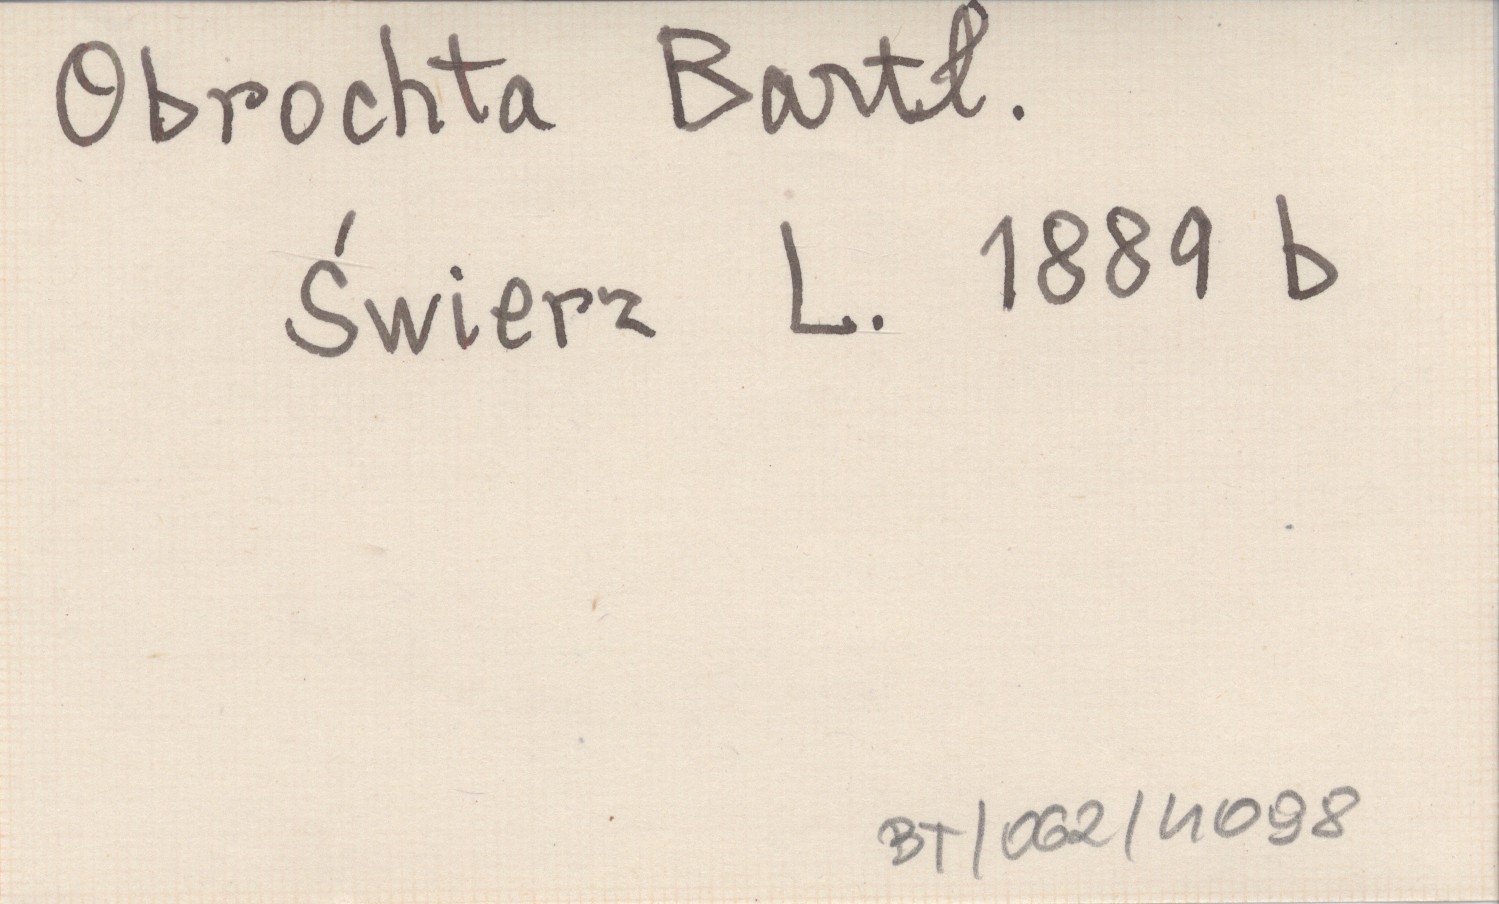 Obrochta Bartł.
Świerz L. 1889 b
BT/062/4098